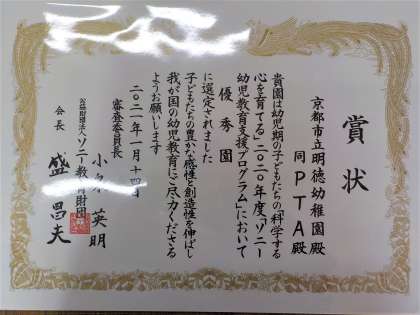 賞状
京都市立明徳幼稚園殿
同PTA殿
貴園は幼児期の子どもたちの「科学する
心を育てる」二〇二〇年度「ソニー
幼児教育支援プログラム」において
優秀園
に選定されました
子どもたちの豊かな感性と創造性を伸ばし
我が国の幼児教育にご尽力くださる
ようお願いします
二〇二一年一月十四日
審査委員長
小泉英明
公益財団法人ソニー教育財団
会長
盛田昌夫